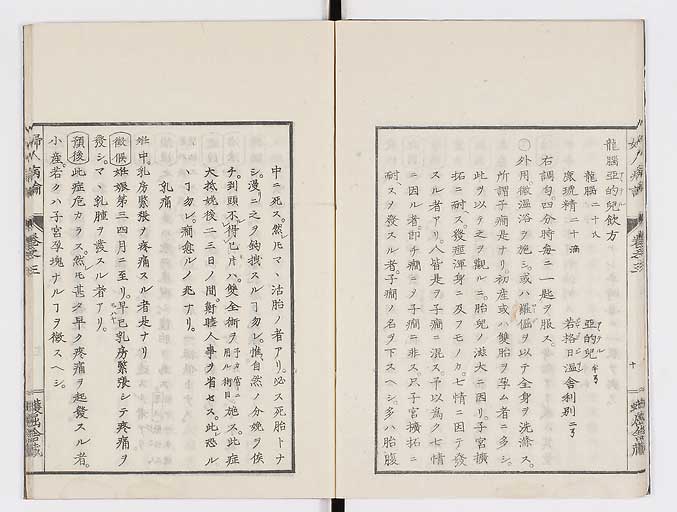 龍腦亞的兒飲方
龍腦二十八 亞的兒半弓
鹿琥精二十滴 若格日溫舍利別二弓
右調勻。四分時每ニ一匙ヲ服ス。
外用微溫浴ヲ施シ。或ハ羅傴ヲ以テ全身ヲ洗滌ス。
所謂子癇是ナリ。初産或ハ雙胎ヲ孕ム者ニ多シ。
此ヲ以テ之ヲ觀ルニ。胎兒ノ滋大ニ因リ。子宮擴
拓ニ耐ヘス。發痙渾身ニ及フモノカ。七情ニ因テ發
スル者アリ。人皆是ヲ子癇ニ混ス。予以爲ク七情
ニ因ル者。即チ癇ニメ子癇ニ非ス。只子宮擴拓ニ
耐ヘスメ發スル者。子癇ノ名ヲ下スヘシ。多ハ胎腹
中ニ死ス。然𪜈マヽ活胎ノ者アリ。必ス死胎トナ
シ。漫ニ之ヲ鉤拽スルヿ勿レ。惟自然ノ分娩ヲ俟
チ。到頭不得已片ハ。雙全術ヲ施ス。此症
大抵娩後二三日ノ間。鼾睡人事ヲ省セス。此恐ル
ヽヿ勿レ。痛愈ルノ兆ナリ。
乳痛
妊中乳房緊張ヲ疼痛スル者是ナリ
徵候 妊娠第三四月ニ至リ。早已乳房緊張シテ疼痛ヲ
發シ。マヽ乳腫ヲ發スル者アリ。
預後 此症危カラス。然𪜈甚タ早ク疼痛ヲ起發スル者。
小産。若クハ子宮孕塊ナルヿヲ徵スヘシ。
婦人病論
卷之三
十